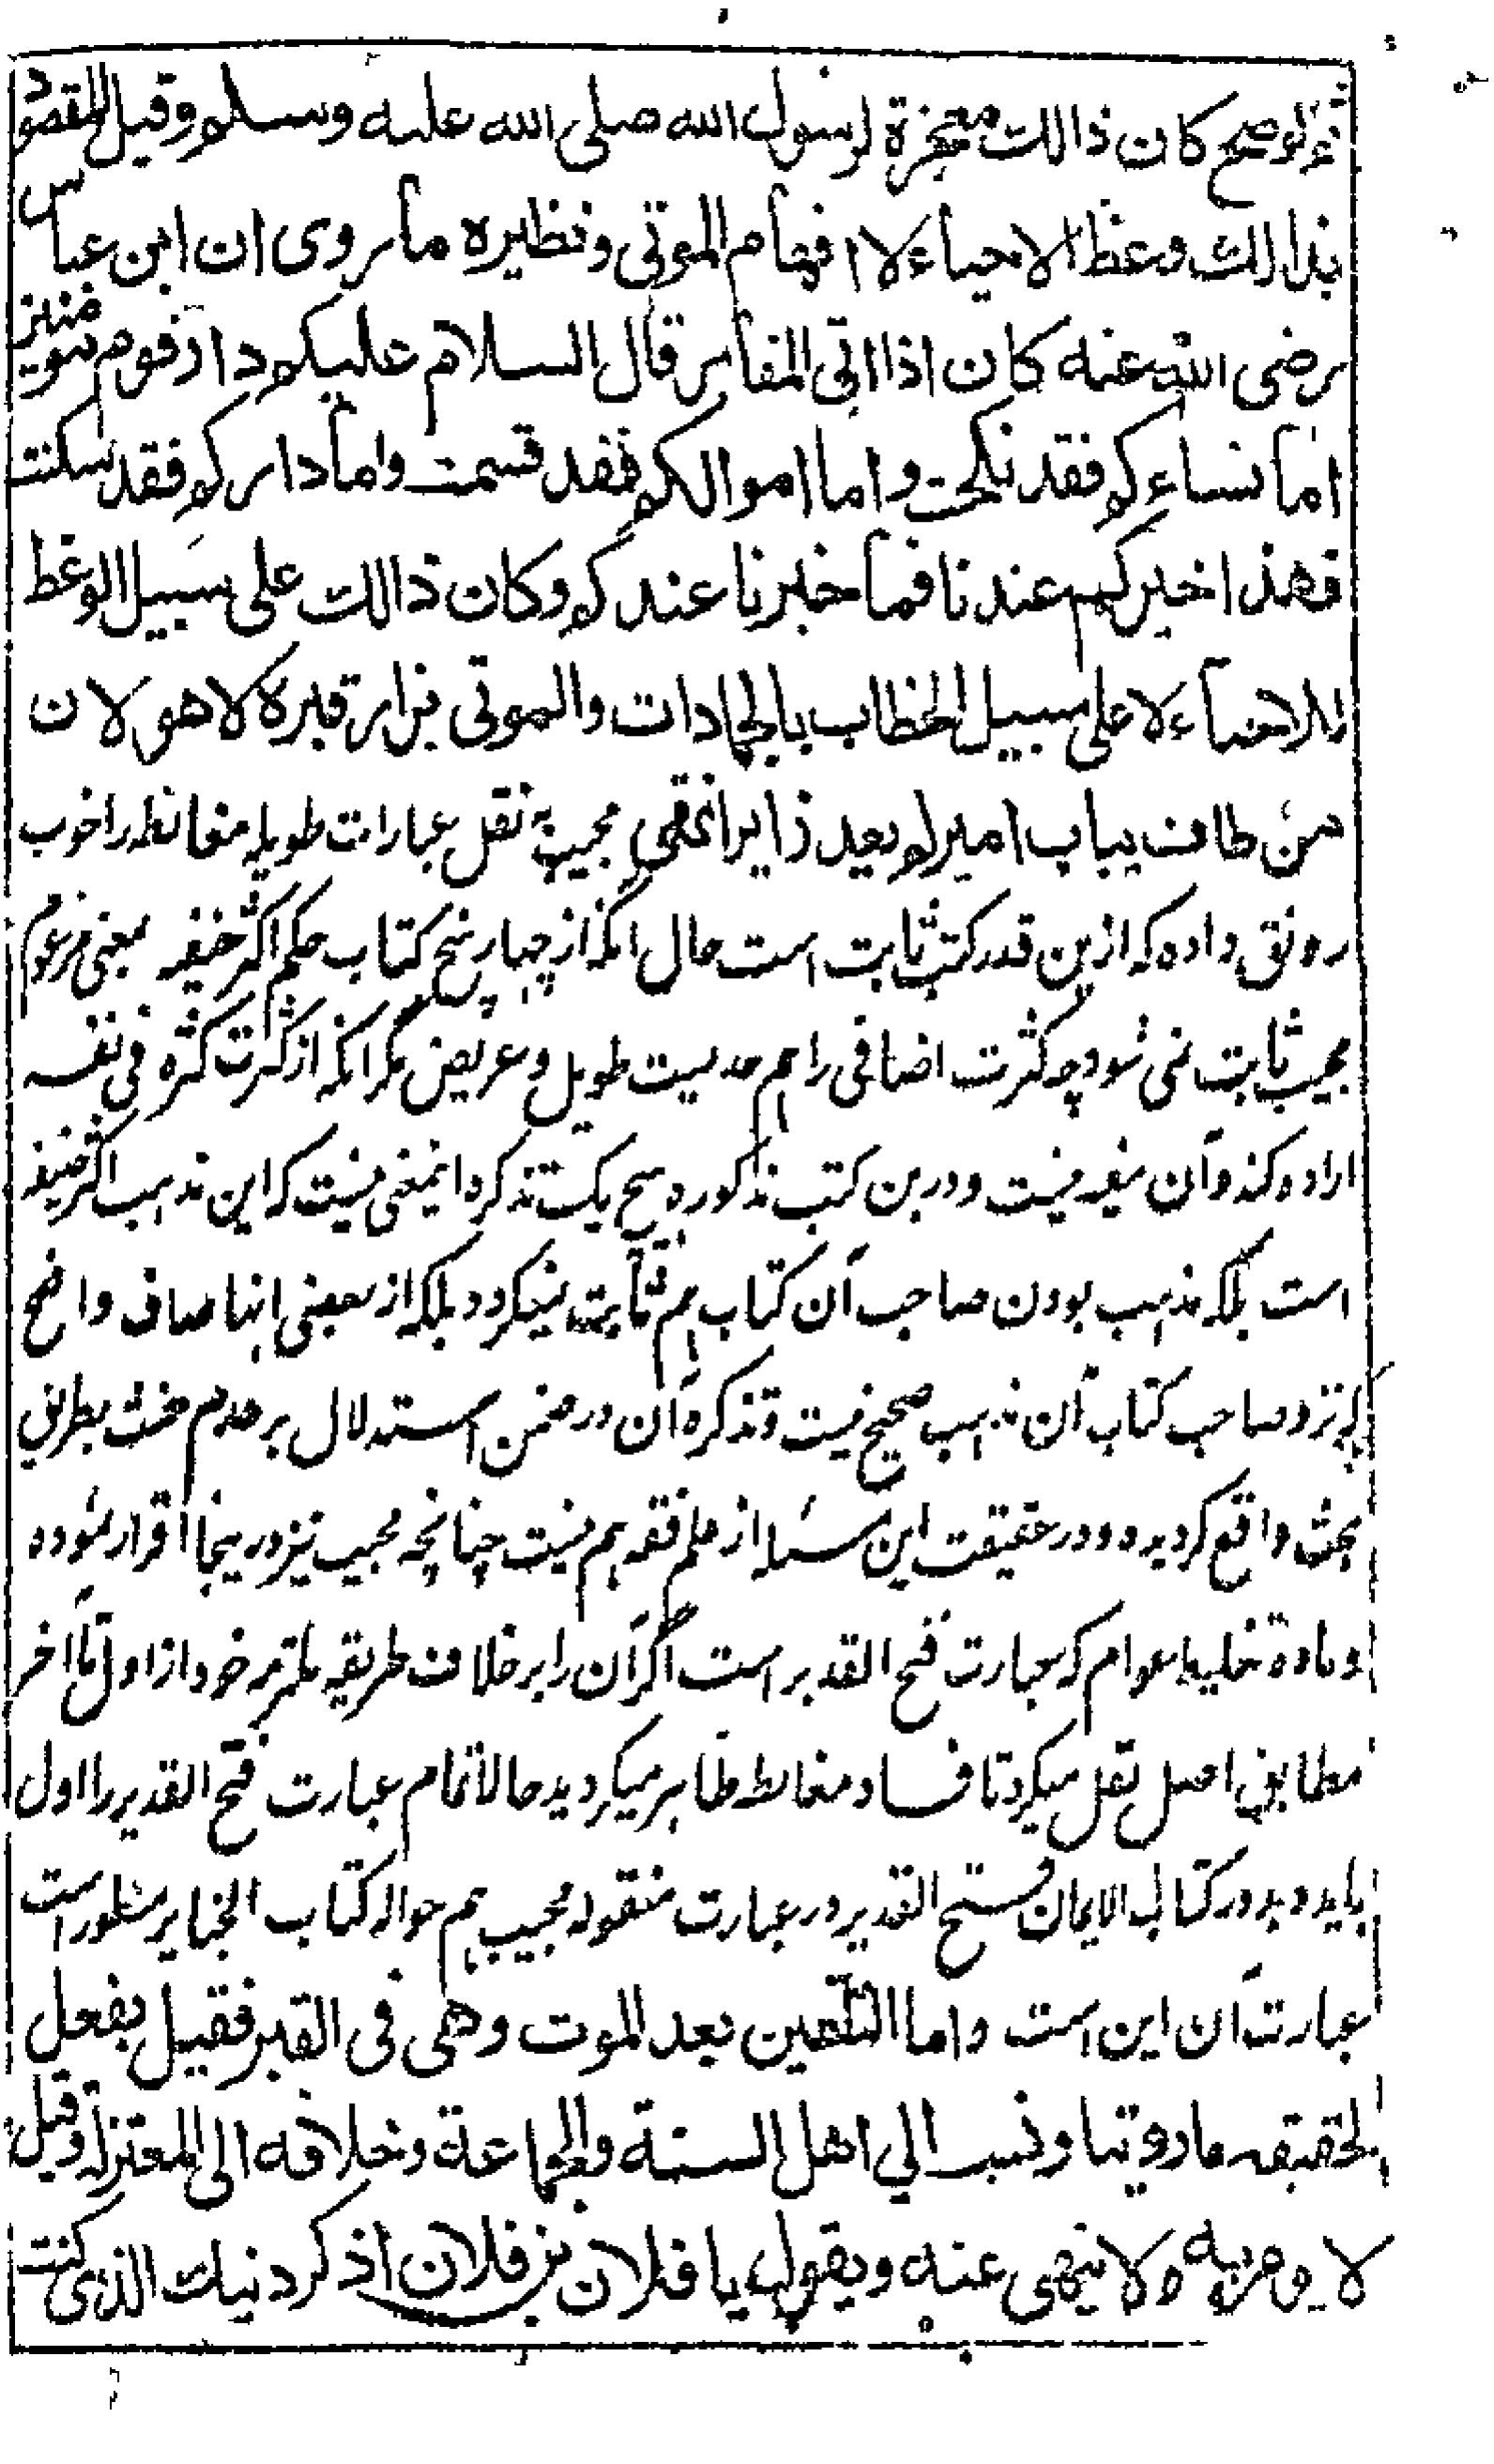 ثم لو صح كان ذالك معجزة لرسول الله صلى الله عليه وسلم وقيل المقصود
بذالك وعظ الاحياء لا افهام الموتى ونظيره ما روى ان ابن عباس
رضى الله عنه كان اذا اتى المقابر قال السلام عليكم دار قوم مومنين
اما نساءكم فقد نكحت واما اموالكم فقد قسمت واما داركم فقد سكنت
فهذا خبركم عندنا فما خبرنا عندكم وكان ذالك على سبيل الوعظ
للاحياء لا على سبيل الخطاب بالجمادات والموتى بزار قبره لا هو لان
من طاف بباب امير لم يعد زايرا انتهى مجيب به نقل عبارات طويله مغالطه را خوب
رونق داده كه ازين قدر كتب ثابت است حال آنكه از چهار پنج كتاب حكم اكثر حنفيه بمعنى مزعوم
مجيب ثابت نمى شود چه كثرت اضافى را هم حديست طويل و عريض مگر آنكه از كثرت كثره فى نفسه
اراده كند و آن مفيد نيست و درين كتب مذكوره هيچ يك تذكره اينمعنى نيست كه اين مذهب اكثر حنفيه
است بلكه مذهب بودن صاحب آن كتاب هم ثابت نميگردد بلكه از بعضى اينها صاف واضح
كه نزد صاحب كتاب آن مذهب صحيح نيست و تذكره آن در ضمن استدلال بر عدم حنث بطريق
بحث واقع گرديده و در حقيقت اين مسئله از علم فقه هم نيست چنانچه مجيب نيز در ينجا اقرار نموده
و ماده تغليط عوام كه بعبارت فتح القدير است اگر آن را بر خلاف طريقه ملتزمه خود از اول تا آخر
مطابق اصل نقل ميكرد تا فساد مغالطه ظاهر ميگرديد حالا تمام عبارت فتح القدير را اول
بايد ديد در كتاب الايمان فتح القدير در عبارت منقوله مجيب هم حواله كتاب الجنايز مسطور است
عبارت آن اين است واما التلقين بعد الموت وهى فى القبر فقيل يفعل
لحقيقه ما روينا ونسب الي اهل السنة والجماعة وخلافه الى المعتزلة وقيل
لا يومر به ولا ينهى عنه ويقول يا فلان بن فلان اذكر دينك الذى كنت